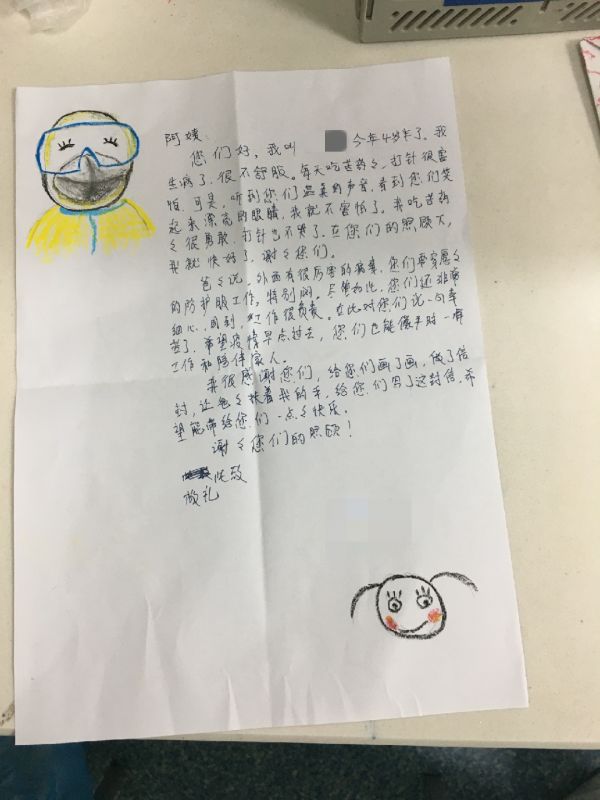 阿姨:
您们好,我叫 今年4岁半了。我
生病了,很不舒服。每天吃苦药々,打针很害
怕,可是,听到您们温柔的声音,看到您们笑
起来漂亮的眼睛,我就不害怕了。我吃苦药
々很勇敢,打针也不哭了。在您们的照顾下,
我就快好了,谢々您们。
爸々说,外面有很厉害的病毒,您们要穿厚々
的防护服工作,特别闷。尽管如此,您们还非常
细心、周到,工作很负责。在此对您们说一句辛
苦了,希望疫情早点过去,您们也能像平时一样
工作和陪伴家人。
我很感谢您们,给您们画了画,做了信
封,让爸々扶着我的手,给您们写了这封信,希
望能带给您们一点々快乐。
谢々您们的照顾!
此致
敬礼